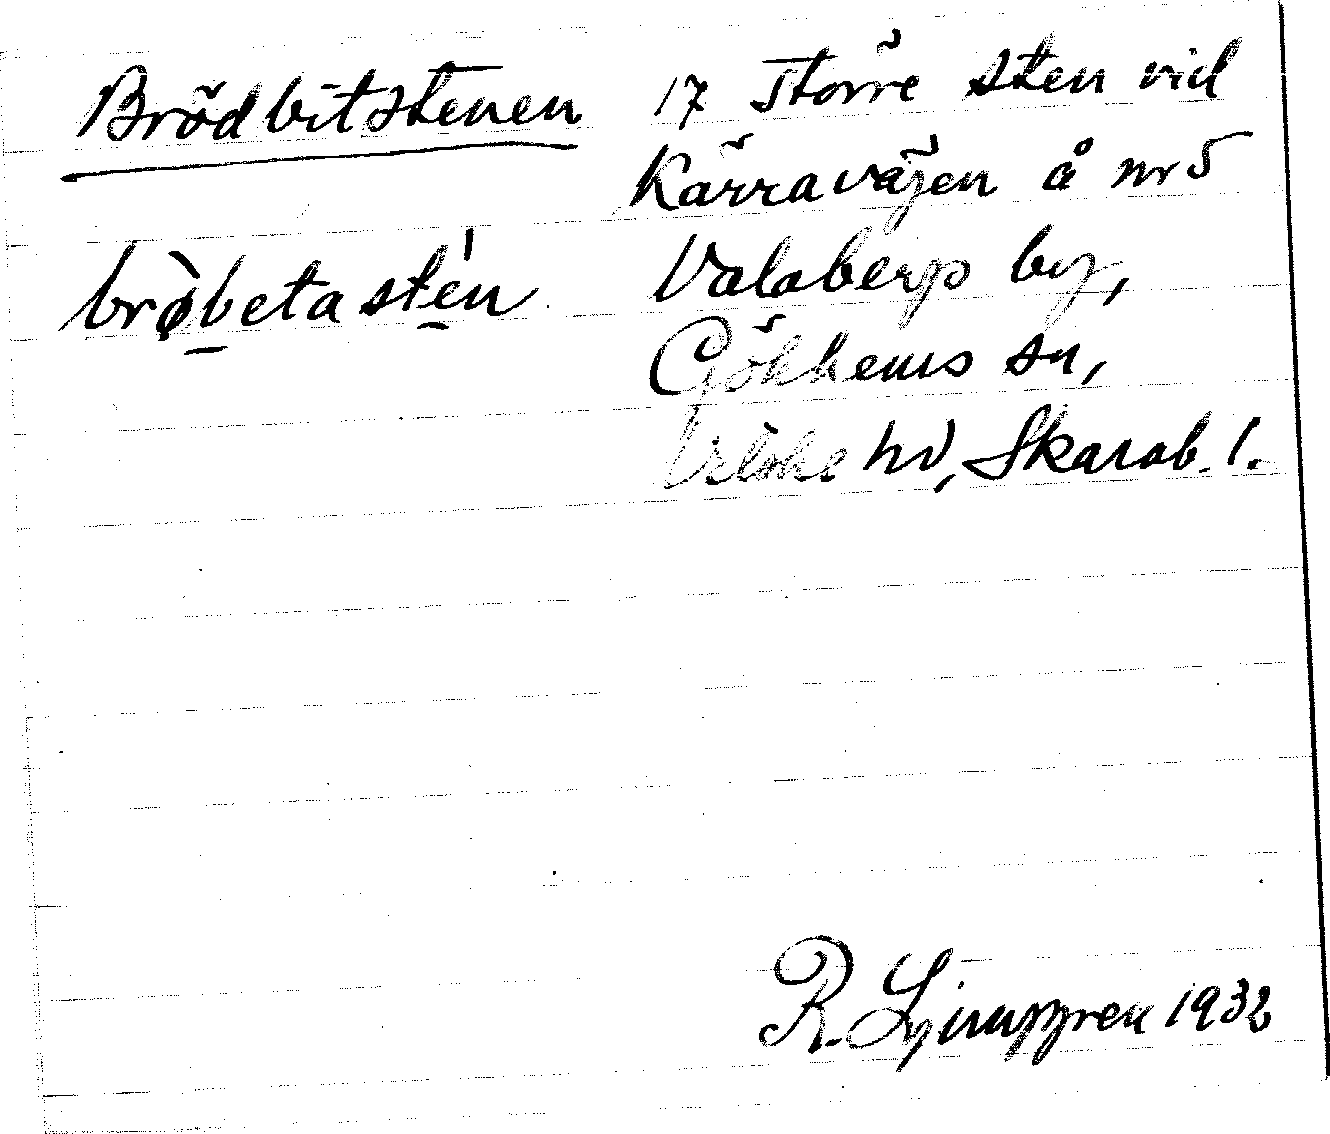 Brödbitstenen
brøbetastén
17 Större sten vid
Kärravägen å nr 5
Valabergs by,
Gökhems sn,
Vilske hd, Skarab. l.
R. Ljunggren 1932